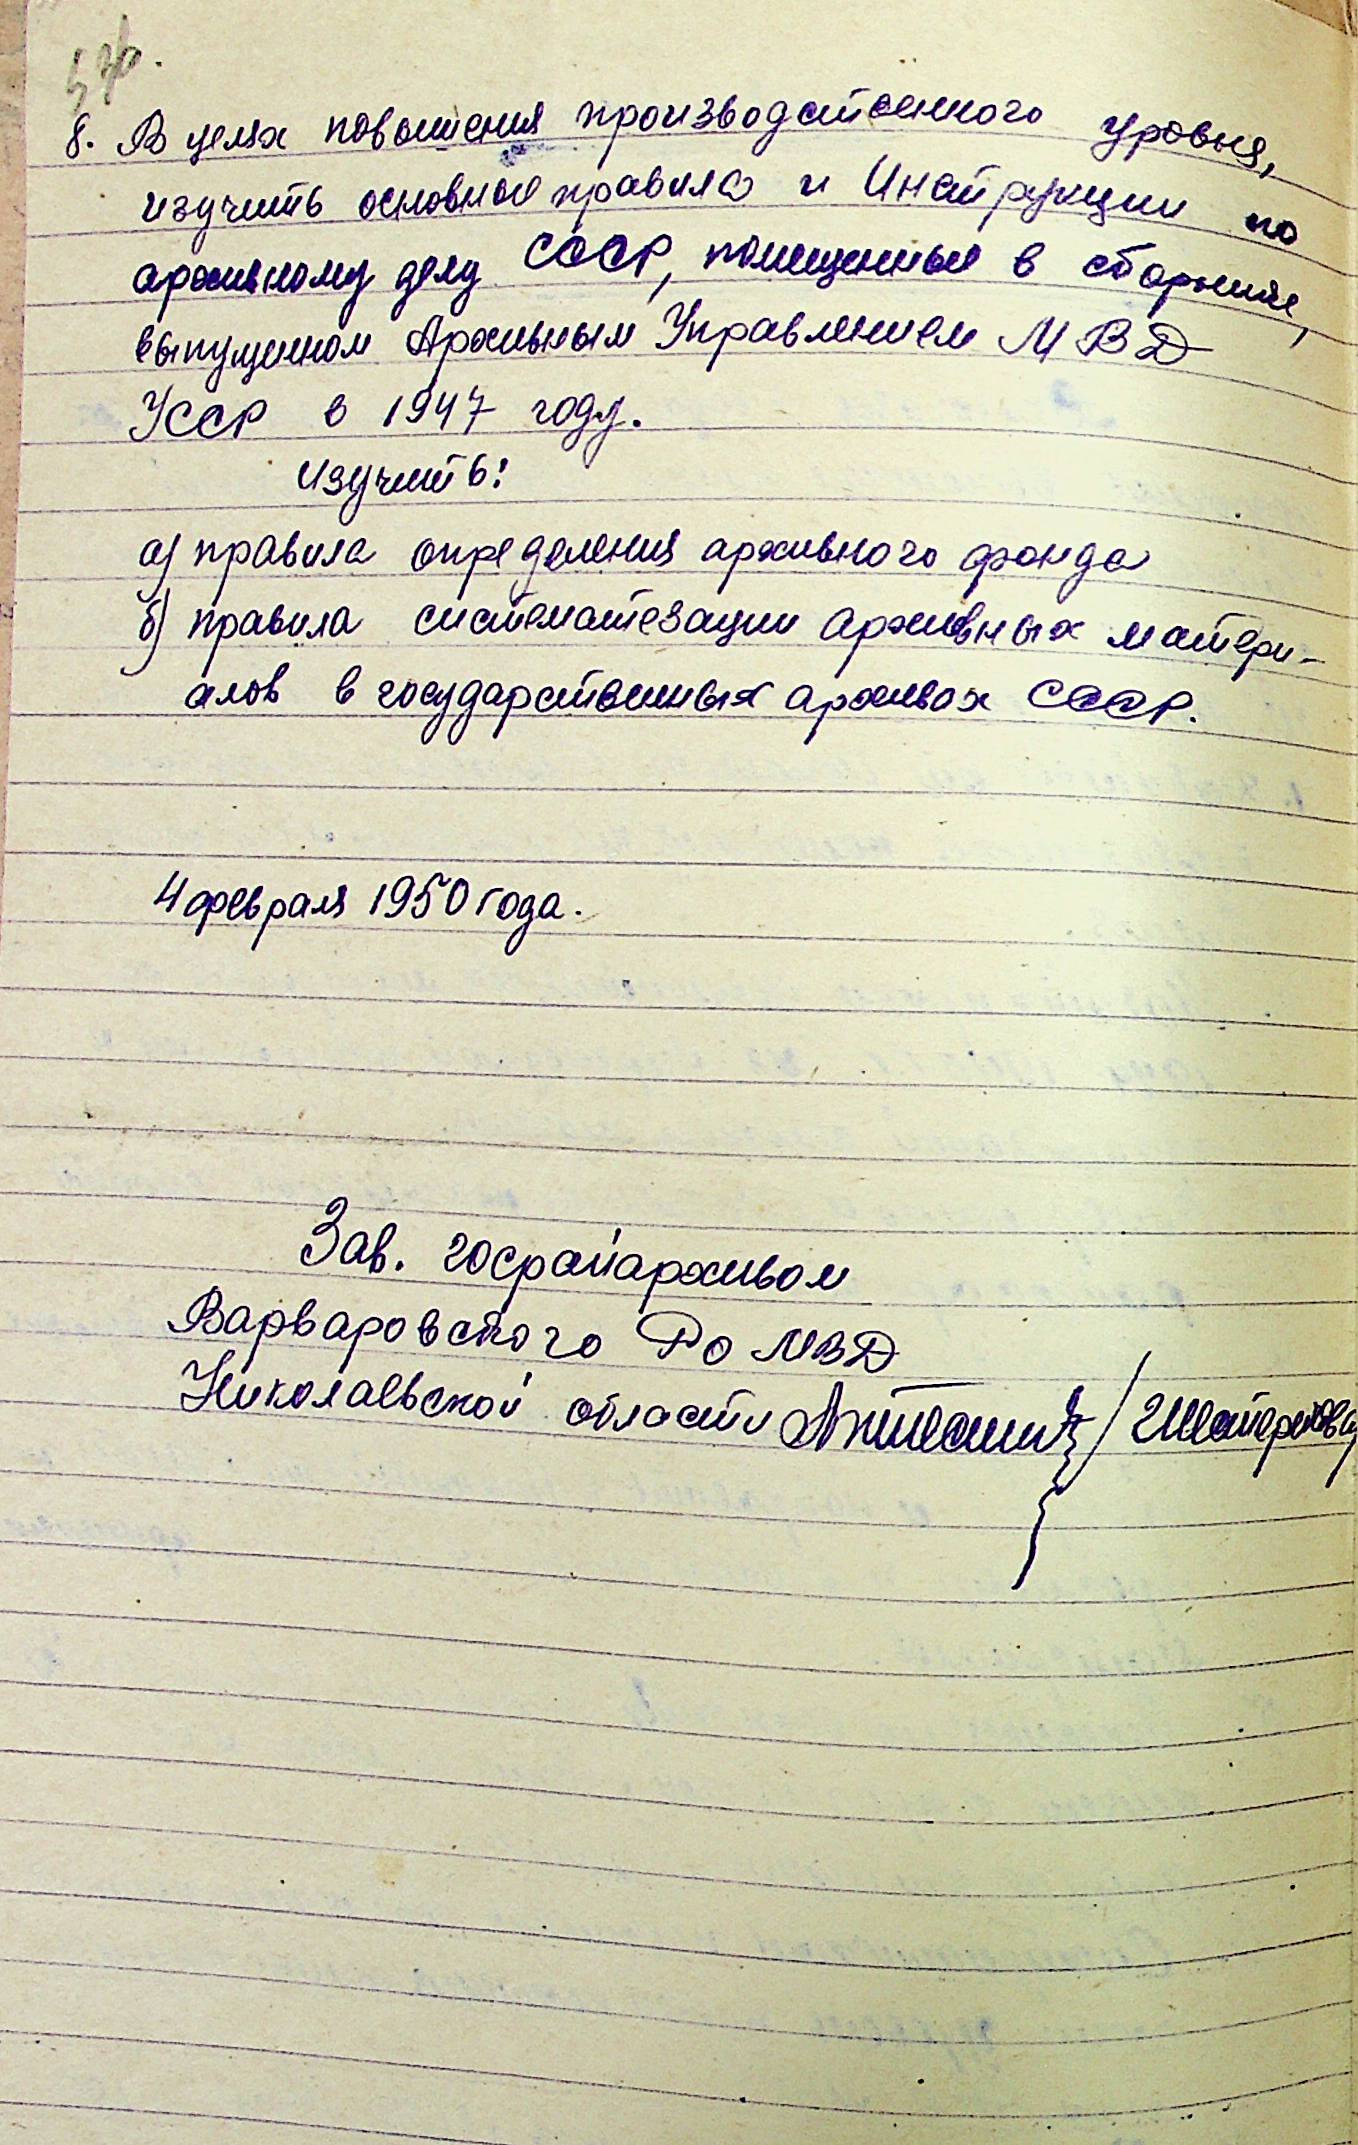 8. В целях повышения производственного уровня,
изучить основные правила и Инструкции по
архивному делу СССР, помещенные в сборнике,
выпущенном Архивным Управлением МВД
УССР в 1947 году.
Изучить:
а) правила определения архивного фонда
б) правила систематезации архивных матери-
алов в государственных архивах СССР.
4 февраля 1950 года.
Зав. госрайархивом
Варваровского Ро МВД
Николаевской области